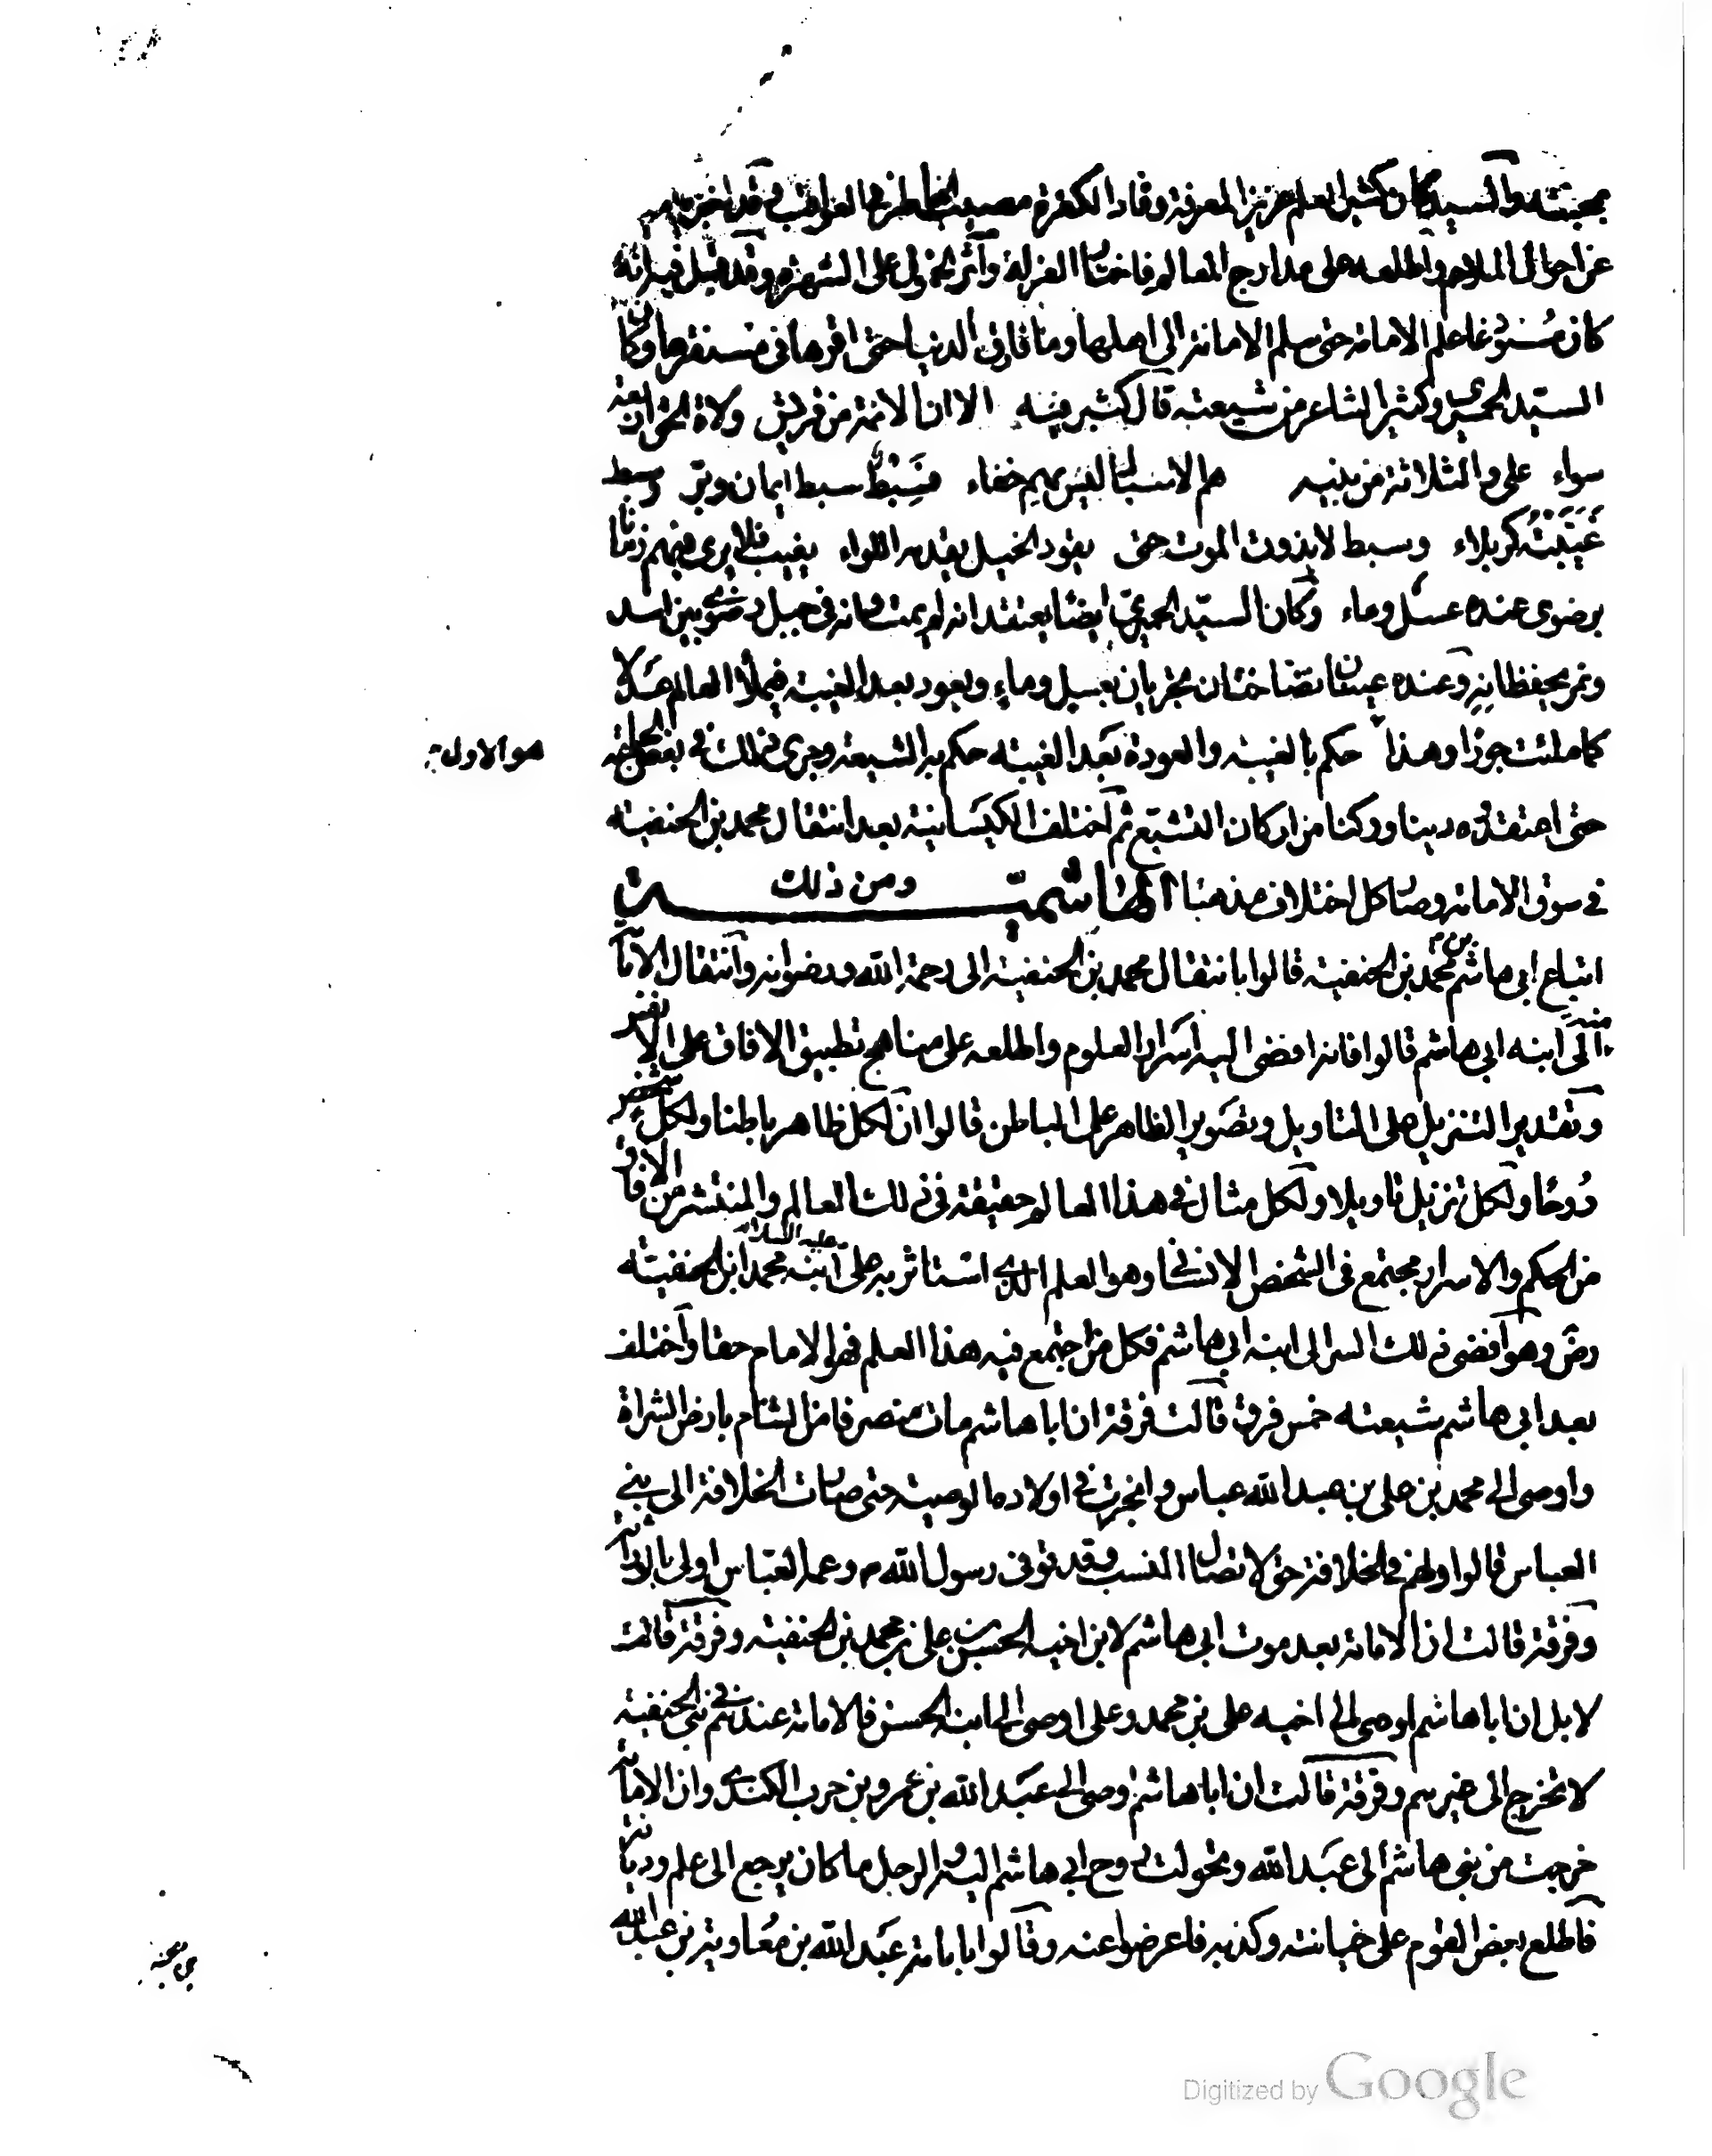 بمحبته والسيد كان كثير العلم غزير المعرفة وقاد الكفرة مصيب الخاطر في العواقب قد اخبره امير
عن احوال الملاحم واطلعه على مدارج المعالم فاختار العزلة وآثر الخمول على الشهرة وقد قيل فيه انه
كان مستودعا علم الامامة حتى سلم الامانة الى اهلها وما فارق الدنيا حتى اقرها في مستقرها وكان
السيد الحميري وكثير الشاعر من شيعته قال كثير فيه الا ان الائمة من قريش ولاة الحق اربعة
سواء علي والثلاثة من بنيه هم الاسباط ليس بهم خفاء فسبط سبط ايمان وبر وسبط
غيبته كربلاء وسبط لا يذوق الموت حتى يقود الخيل يقدمه اللواء يغيب فلا يرى فيهم زمانا
برضوى عنده عسل وماء وكان السيد الحميري ايضا يعتقد انه لم يمت وانه في جبل رضوى بين اسد
ونمر يحفظانه وعنده عينان نضاختان تجريان بعسل وماء ويعود بعد الغيبة فيملأ العالم عدلا
كما ملئت جورا وهذا حكم بالغيبة والعودة بعد الغيبة حكم به الشيعة وجرى ذلك في بعض الجماعة
هو الاول
حتى اعتقدوه دينا وركنا من اركان التشيع ثم اختلف الكيسانية بعد انتقال محمد بن الحنفية
في سوق الامامة وصار كل اختلاف مذهبا الهاشمية ومن ذلك
اتباع ابي هاشم بن محمد بن الحنفية قالوا بانتقال محمد بن الحنفية الى رحمة الله ورضوانه وانتقال الامامة
منه الى ابنه ابي هاشم قالوا فانه افضى اليه اسرار العلوم واطلعه على مناهج تطبيق الافاق على الانفس
وتقدير التنزيل على التاويل وتصوير الظاهر على الباطن قالوا ان لكل ظاهر باطنا ولكل شخص
روحا ولكل تنزيل تاويلا ولكل مثال في هذا العالم حقيقة في ذلك العالم والمنتشر من الافاق
من الحكم والاسرار مجتمع في الشخص الانساني وهو العلم الذي استاثر به علي عليه السلام ابنه محمد ابن الحنفية
رض وهو افضى ذلك السر الى ابنه ابي هاشم فكل من اجتمع فيه هذا العلم فهو الامام حقا واختلف
بعد ابي هاشم شيعته خمس فرق قالت فرقة ان ابا هاشم مات منصرفا من الشام بارض الشراة
واوصى الى محمد بن علي بن عبد الله عباس وانجرت في اولاده الوصية حتى صارت الخلافة الى بني
العباس قالوا ولهم في الخلافة حق لاتصال النسب وقد توفى رسول الله م وعمه العباس اولى بالوراثة
وفرقة قالت ان الامامة بعد موت ابي هاشم لابن اخيه الحسن بن علي بن محمد بن الحنفية وفرقة قالت
لا بل ان ابا هاشم اوصى الى اخيه علي بن محمد وعلي اوصى الى ابنه الحسن فالامامة عندهم في بني الحنفية
لا تخرج الى غيرهم وفرقة قالت ان ابا هاشم اوصى الى عبد الله بن عمرو بن حرب الكندي وان الامامة
خرجت من بني هاشم الى عبد الله وتحولت روح ابي هاشم اليه والرجل ما كان يرجع الى علم وديانة
فاطلع بعض القوم على خيانته وكذبه فاعرضوا عنه وقالوا بامامة عبد الله بن معاوية بن عبد الله
Digitized by Google